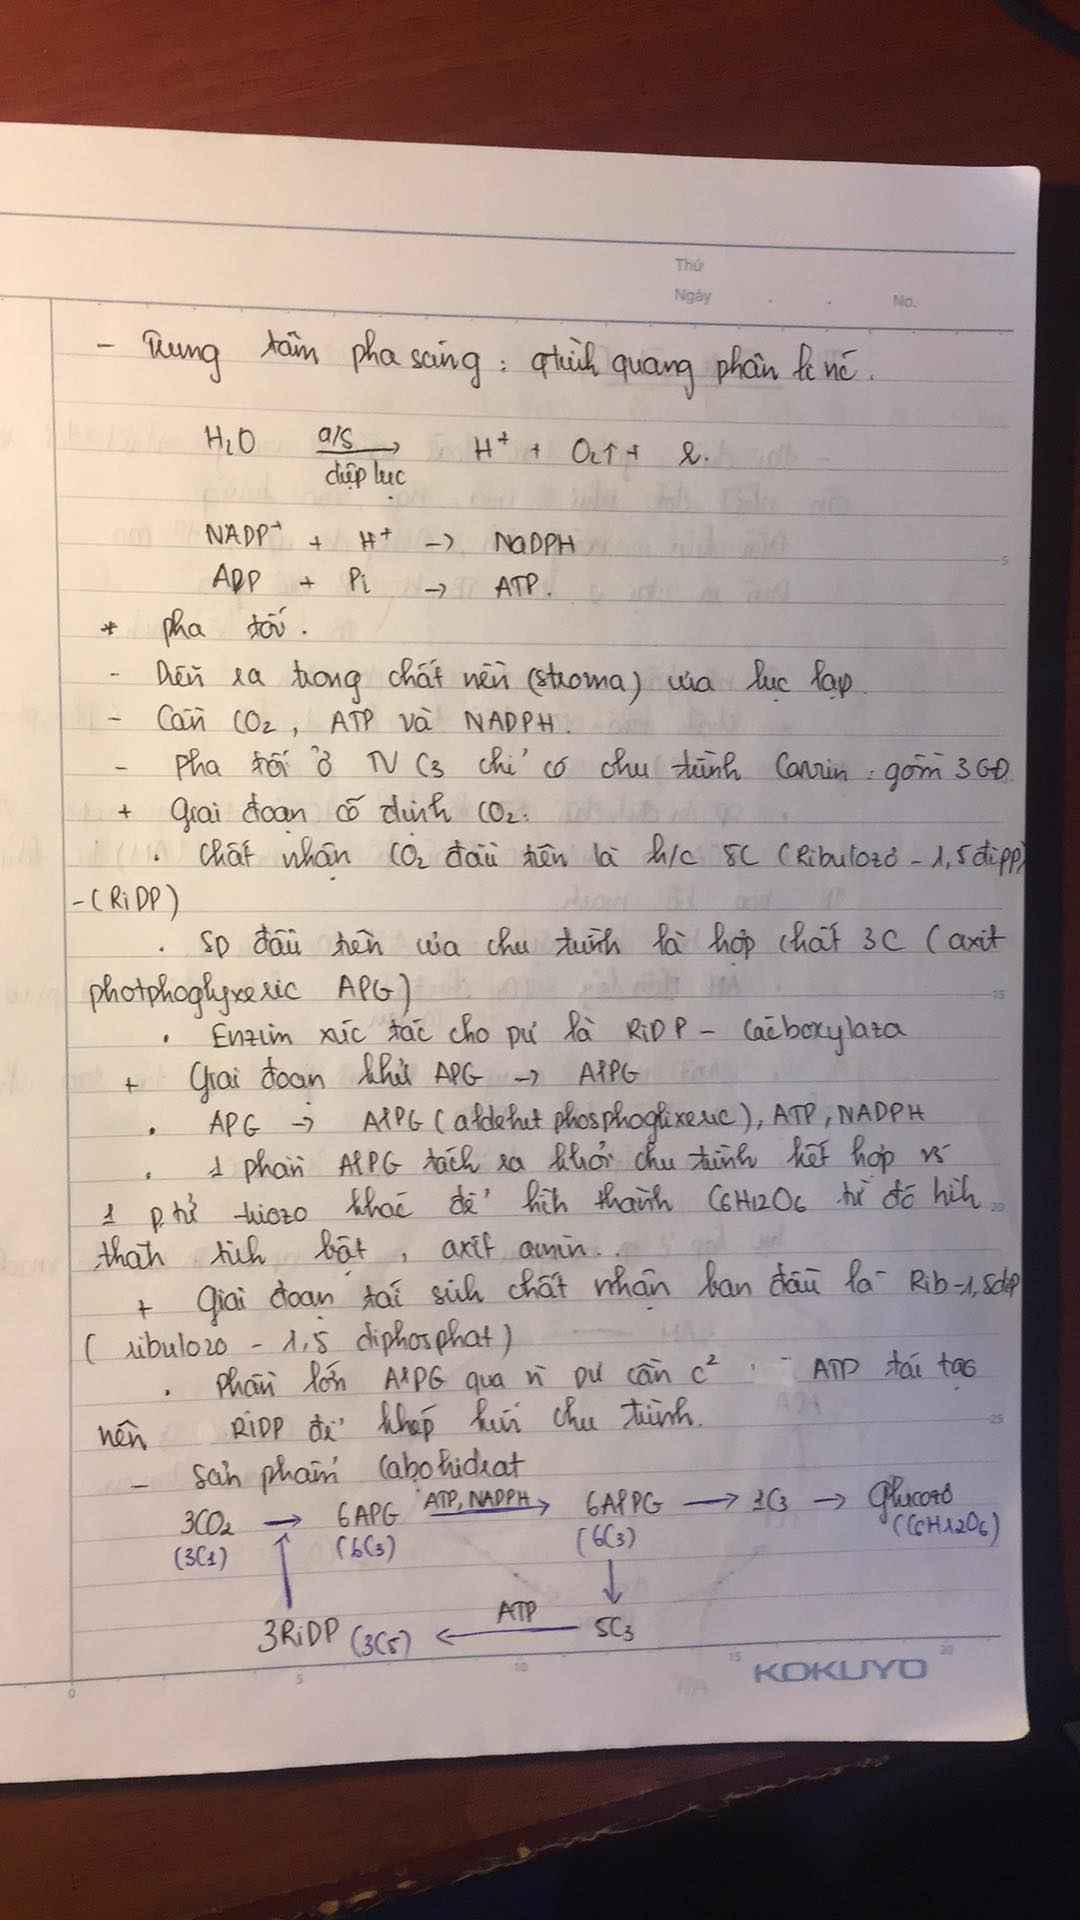 Thứ
Ngày . . No.
- Trung tâm pha sáng : qtrình quang phân li nc.
H2O a/s diệp lục → H+ + O2↑ + e.
NADP+ + H+ → NADPH
ADP + Pi → ATP.
* pha tối.
- Diễn ra trong chất nền (stroma) của lục lạp
- Cần CO2, ATP và NADPH.
- Pha tối ở TV C3 chỉ có chu trình Canvin : gồm 3 GĐ
+ Giai đoạn cố định CO2:
. Chất nhận CO2 đầu tiên là h/c 5C (Ribulozơ - 1,5 đipp)
-(RiDP)
. SP đầu tiên của chu trình là hợp chất 3C (axit
photphoglyxeric APG)
. Enzim xúc tác cho pư là RiDP - cacboxylaza
+ Giai đoạn khử APG → AlPG
. APG → AlPG (aldehit phosphoglixeric), ATP, NADPH
. 1 phần AlPG tách ra khỏi chu trình kết hợp vs
1 p.tử triozo khác để hih thành C6H12O6 từ đó hih
thàh tih bột, axit amin..
+ Giai đoạn tái sih chất nhận ban đầu là Rib-1,5diP
(ribulozo - 1,5 diphosphat)
. Phần lớn AlPG qua n pư cần c2 ATP tái tạo
nên RiDP để khép kín chu trình.
- Sản phẩm cabohidrat
3CO2 → 6APG ATP, NADPH → 6AlPG → 1C3 → Glucozo
(3C1) (6C3) (6C3) (C6H12O6)
3RiDP (3C5) ← ATP 5C3
0 5 10 15 20
KOKUYO